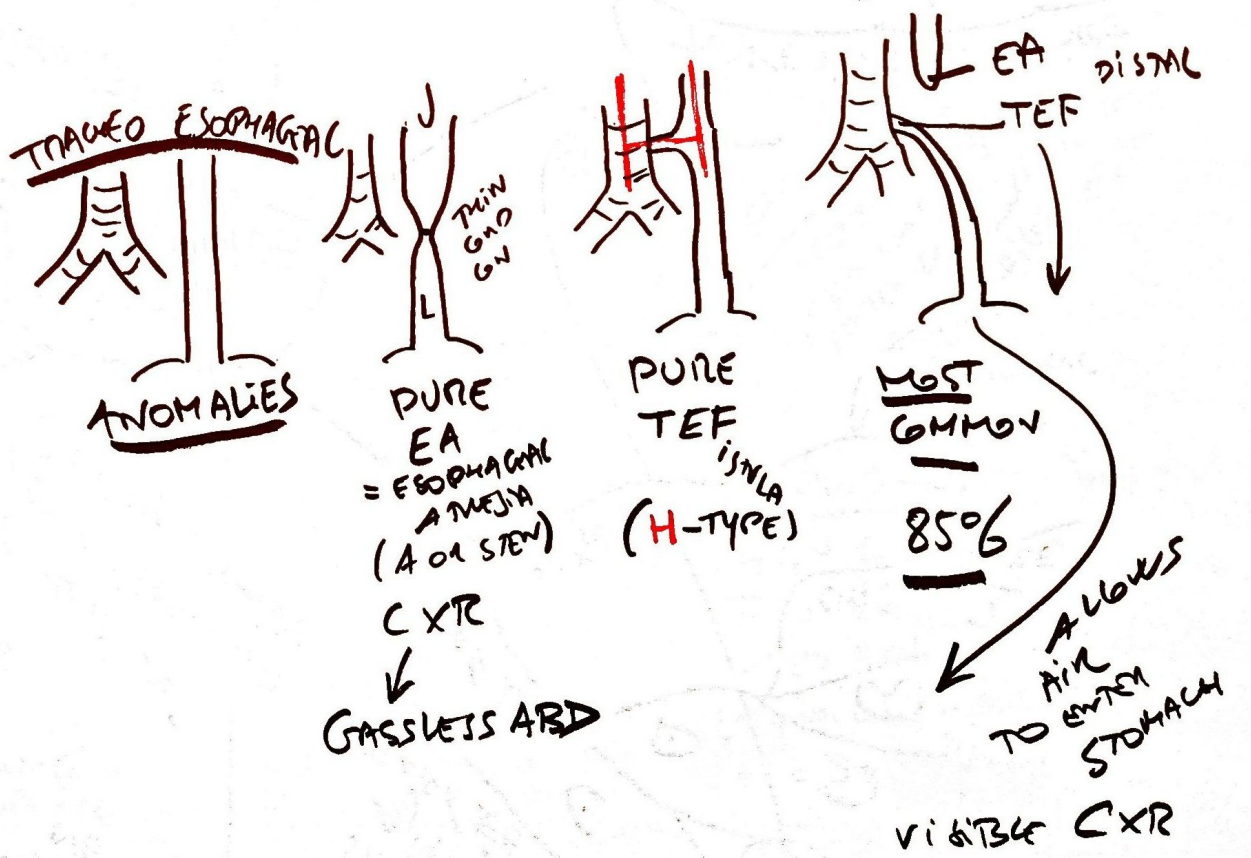 TRACHEO ESOPHAGEAL
ANOMALIES
THIN
CORD
ON
L
PURE
EA
= ESOPHAGEAL
ATRESIA
(A OR STEN)
CXR
GASSLESS ABD
PURE
TEF
ISTULA
(H-TYPE)
EA
DISTAL
TEF
MOST
COMMON
85%
ALLOWS
AIR
TO ENTER
STOMACH
VISIBLE CXR